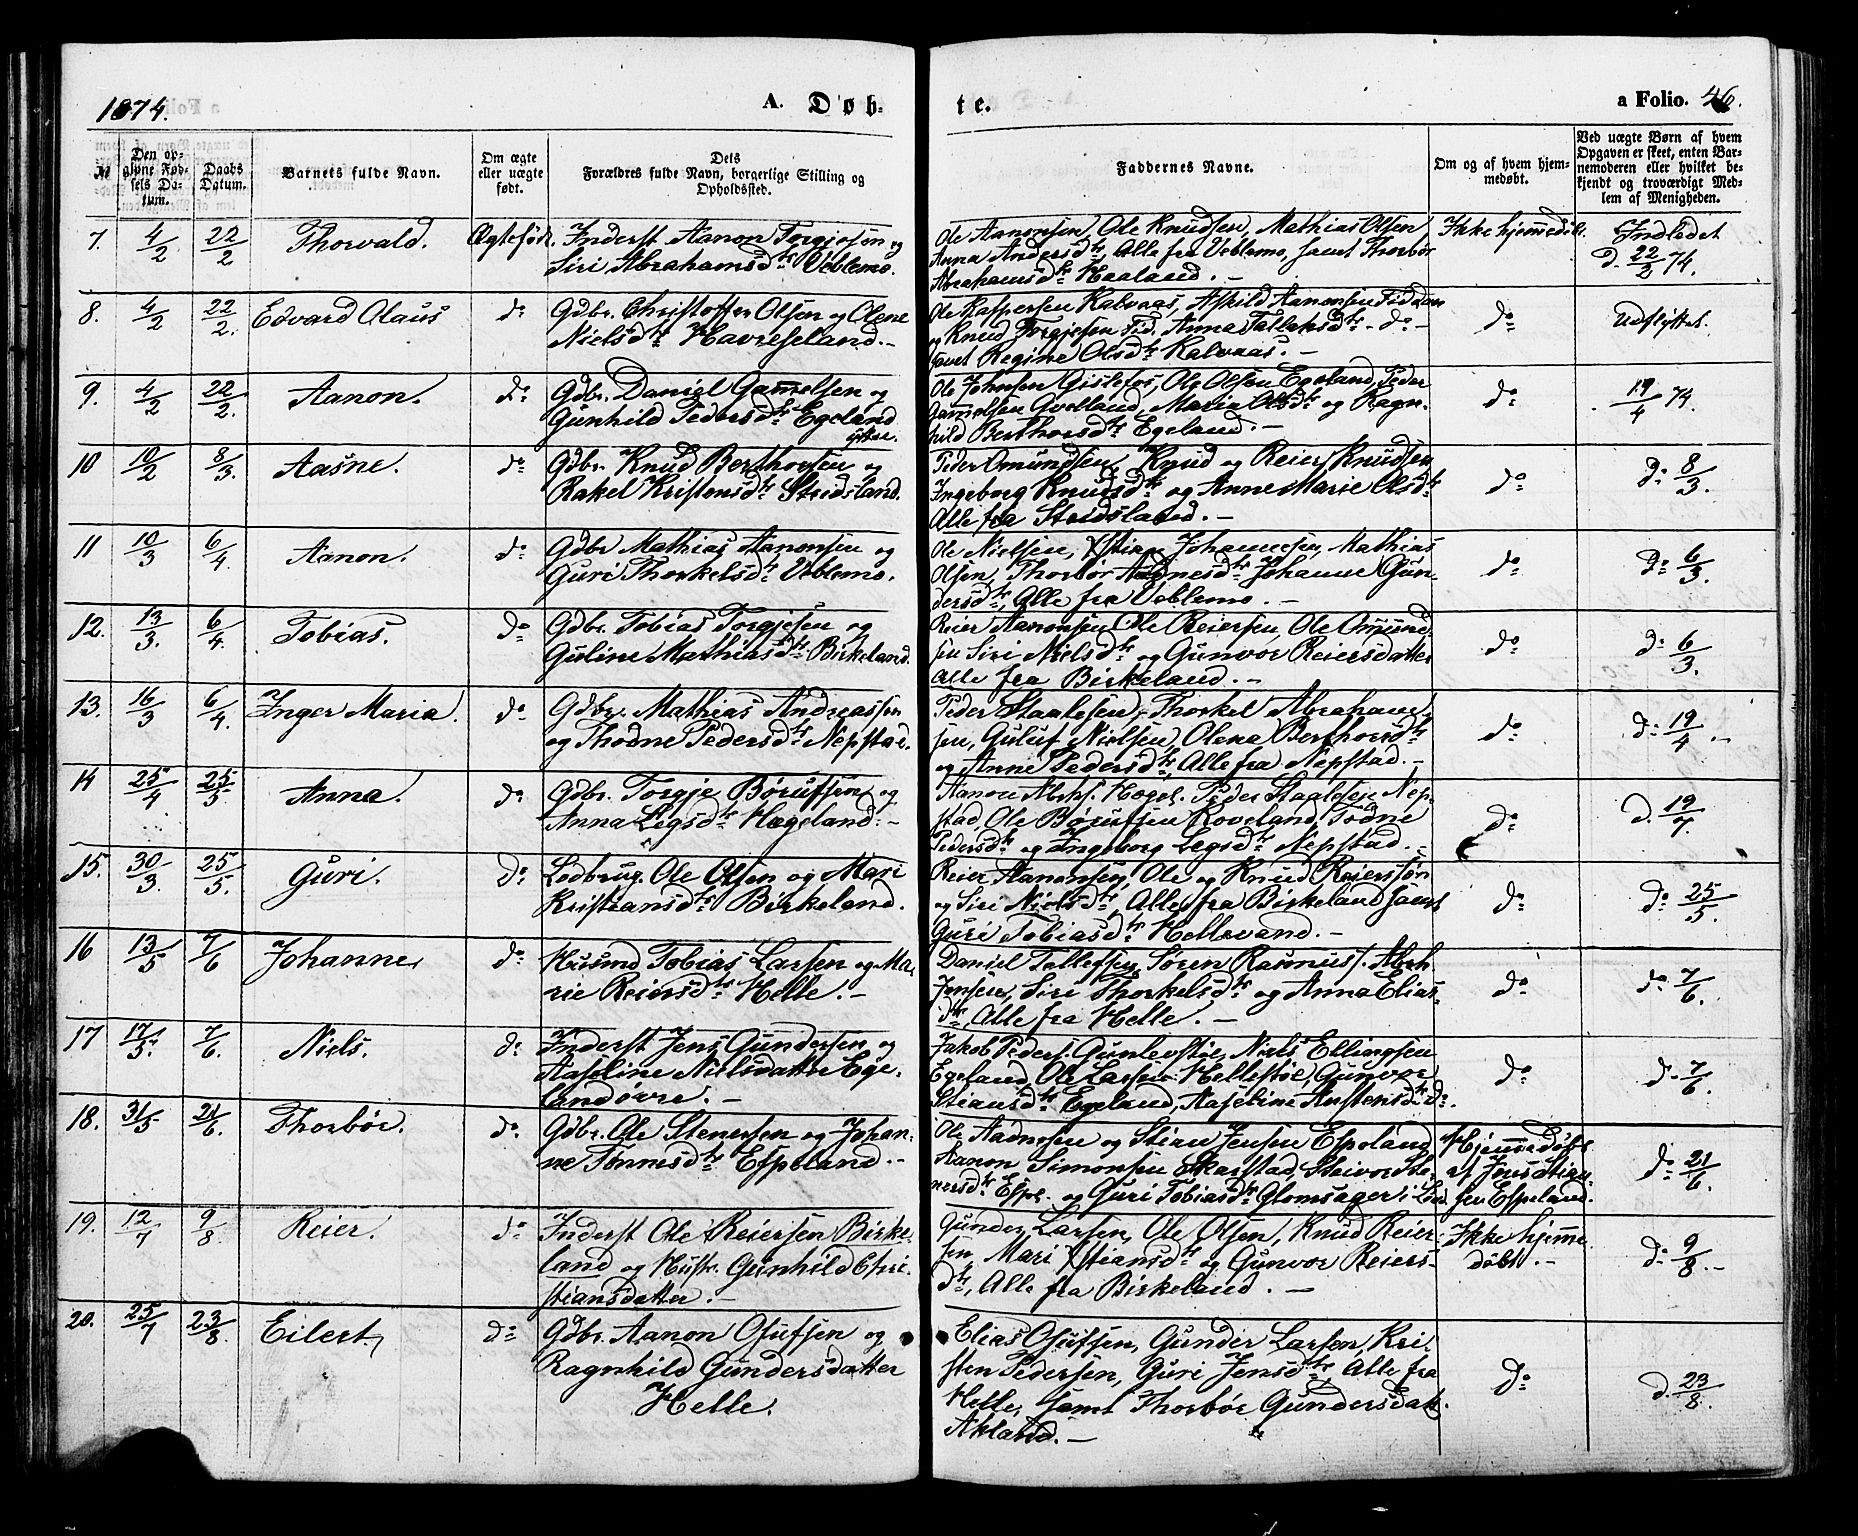 1874.
A. Døb-
te.
a Folio. 46.
№
Den op-
givne Fød-
sels Da-
tum.
Daabs
Datum.
Barnets fulde Navn.
Om ægte
eller uægte
født.
Dets
Forældres fulde Navn, borgerlige Stilling og
Opholdssted.
Faddernes Navne.
Om og af hvem hjem-
medøbt.
Ved uægte Børn af hvem
Opgaven er skeet, enten Bar-
nemoderen eller hvilket be-
kjendt og troværdige Med-
lem af Menigheden.
7. 4/2 22/2 Thorvald. Ægtefødt. Inderst Aanon Torgjesen og
Siri Abrahamsdtr Ueblemo.
Ole Aanonsen, Ole Knudsen, Mathias Olsen
Anna Andersdtr, Alle fra Ueblemo, samt Thorbør
Abrahamsdtr Haaland. -
Ikke hjemmedøbt.
Indledet
d. 22/3 74.
8. 4/2 22/2. Edvard Olaus do Gdbr. Christoffer Olsen og Olene
Nielsdtr Havreseland. -
Ole Kaspersen Kalvaas, Askild Aanonsen Fidjan
og Knud Torgjesen Fid. Anna Tallaksdtr - do -
samt Regine Olsdtr Kalvaas. -
do
Udflyttet.
9. 4/2 22/2. Aanon. do Gdbr. Daniel Gamelsen og
Gunhild Pedersdtr Egeland
yttre.
Ole Johnsen Gislefos, Ole Olsen Egeland, Peder
Gamelsen Qvelland, Maria Olsdtr og Ragn-
hild Berthorsdtr Egeland. -
do
19/4 74.
10 10/2 8/3. Aasne. do Gdbr. Knud Berthorsen og
Rakel Kristensdtr Stridsland.
Peder Omundsen, Knud og Reier Knudsen
Ingeborg Knudsdtr og Anne Marie Olsdtr
Alle fra Stridsland. -
do
do 8/3.
11 10/3 6/4. Aanon. do Gdbr Mathias Aanonsen og
Guri Thorkelsdtr Ueblemo.
Ole Nielsen, Xstian Johannesen, Mathias
Olsen, Thorbør Aadnesdtr Johanne Gun-
dersdtr, Alle fra Ueblemo. -
do
do 6/3.
12. 13/3 6/4. Tobias. do Gdbr. Tobias Torgjesen og
Guline Mathiasdtr Birkeland.
Reier Aanonsen, Ole Reiersen, Ole Omund-
sen Siri Nielsdtr og Gunvor Reiersdatter
alle fra Birkeland. -
do
do 6/3.
13. 16/3 6/4 Inger Maria. do Gdbr. Mathias Andreassen
og Thodne Pedersdtr Nepstad.
Peder Staalesen, Thorkel Abraham-
sen, Guluf Nielsen, Olena Berthorsdtr
og Anne Pedersdtr, Alle fra Nepstad. -
do
do 19/4. -
14 25/4 25/5. Anna. do Gdbr. Torgje Børufsen og
Anna Legsdtr Hægeland. -
Aanon Abrhs. Hægel. Peder Staalesen Nep-
stad, Ole Børufsen Roveland, Todne
Pedersdtr og Ingeborg Legsdtr Nepstad. -
do
d. 19/7.
15. 30/3. 25/5. Guri. do Lodbrug. Ole Olsen og Mari
Kristiansdtr Birkeland.
Reier Aanonsen, Ole og Knud Reierssøn
og Siri Nielsdtr, Alle fra Birkeland samt
Guri Tobiasdtr Hellevand. -
do
do 25/5.
16 13/5 7/6 Johanne, do Husmd Tobias Larsen og Ma-
rie Reiersdtr Helle. -
Daniel Tallefsen, Søren Rasmuss. Abrh.
Jensen, Siri Thorkelsdtr og Anna Elias-
dtr, Alle fra Helle. -
do
do 7/6.
17 17/5. 7/6. Niels. do Inderst Jens Gundersen og
Aaseline Nielsdatter Ege-
landøvre. -
Jakob Peders. Gunlevstøl, Niels Ellingsen
Egeland, Ole Larsen Hellestøl, Gunvor
Stiansdtr Egeland, Aaseline Austensdtr do.
do
d. 7/6.
18. 31/5 21/6. Thorbør. do. Gdbr. Ole Stenersen og Johan-
ne Tønnesdtr Espeland. -
Ole Aadnesen og Stian Jensen Espeland
Aanon Simonsen Skarstad, Steivor Ste-
nersdtr Espel. og Guri Tobiasdtr Glomsager i Evd.
Hjemmedøbt
af Jens Stian-
sen Espeland.
do 21/6.
19. 12/7 9/8 Reier. do Inderst Ole Reiersen Birke-
land og Hustr. Gunhild Chri-
stiansdatter. -
Gunder Larsen, Ole Olsen, Knud Reier-
sen, Mari Xstiansdtr og Gunvor Reiers-
dtr, Alle fra Birkeland. -
Ikke hjemme-
døbt. -
do 9/8. -
20. 25/7 23/8. Eilert, do Gdbr. Aanon Osufsen og
Ragnhild Gundersdatter
Helle.
Elias Osufsen, Gunder Larsen, Kri-
sten Pedersen, Guri Jensdtr, Alle fra
Helle, samt Thorbør Gundersdatt.
Akland. -
do
d. 23/8.